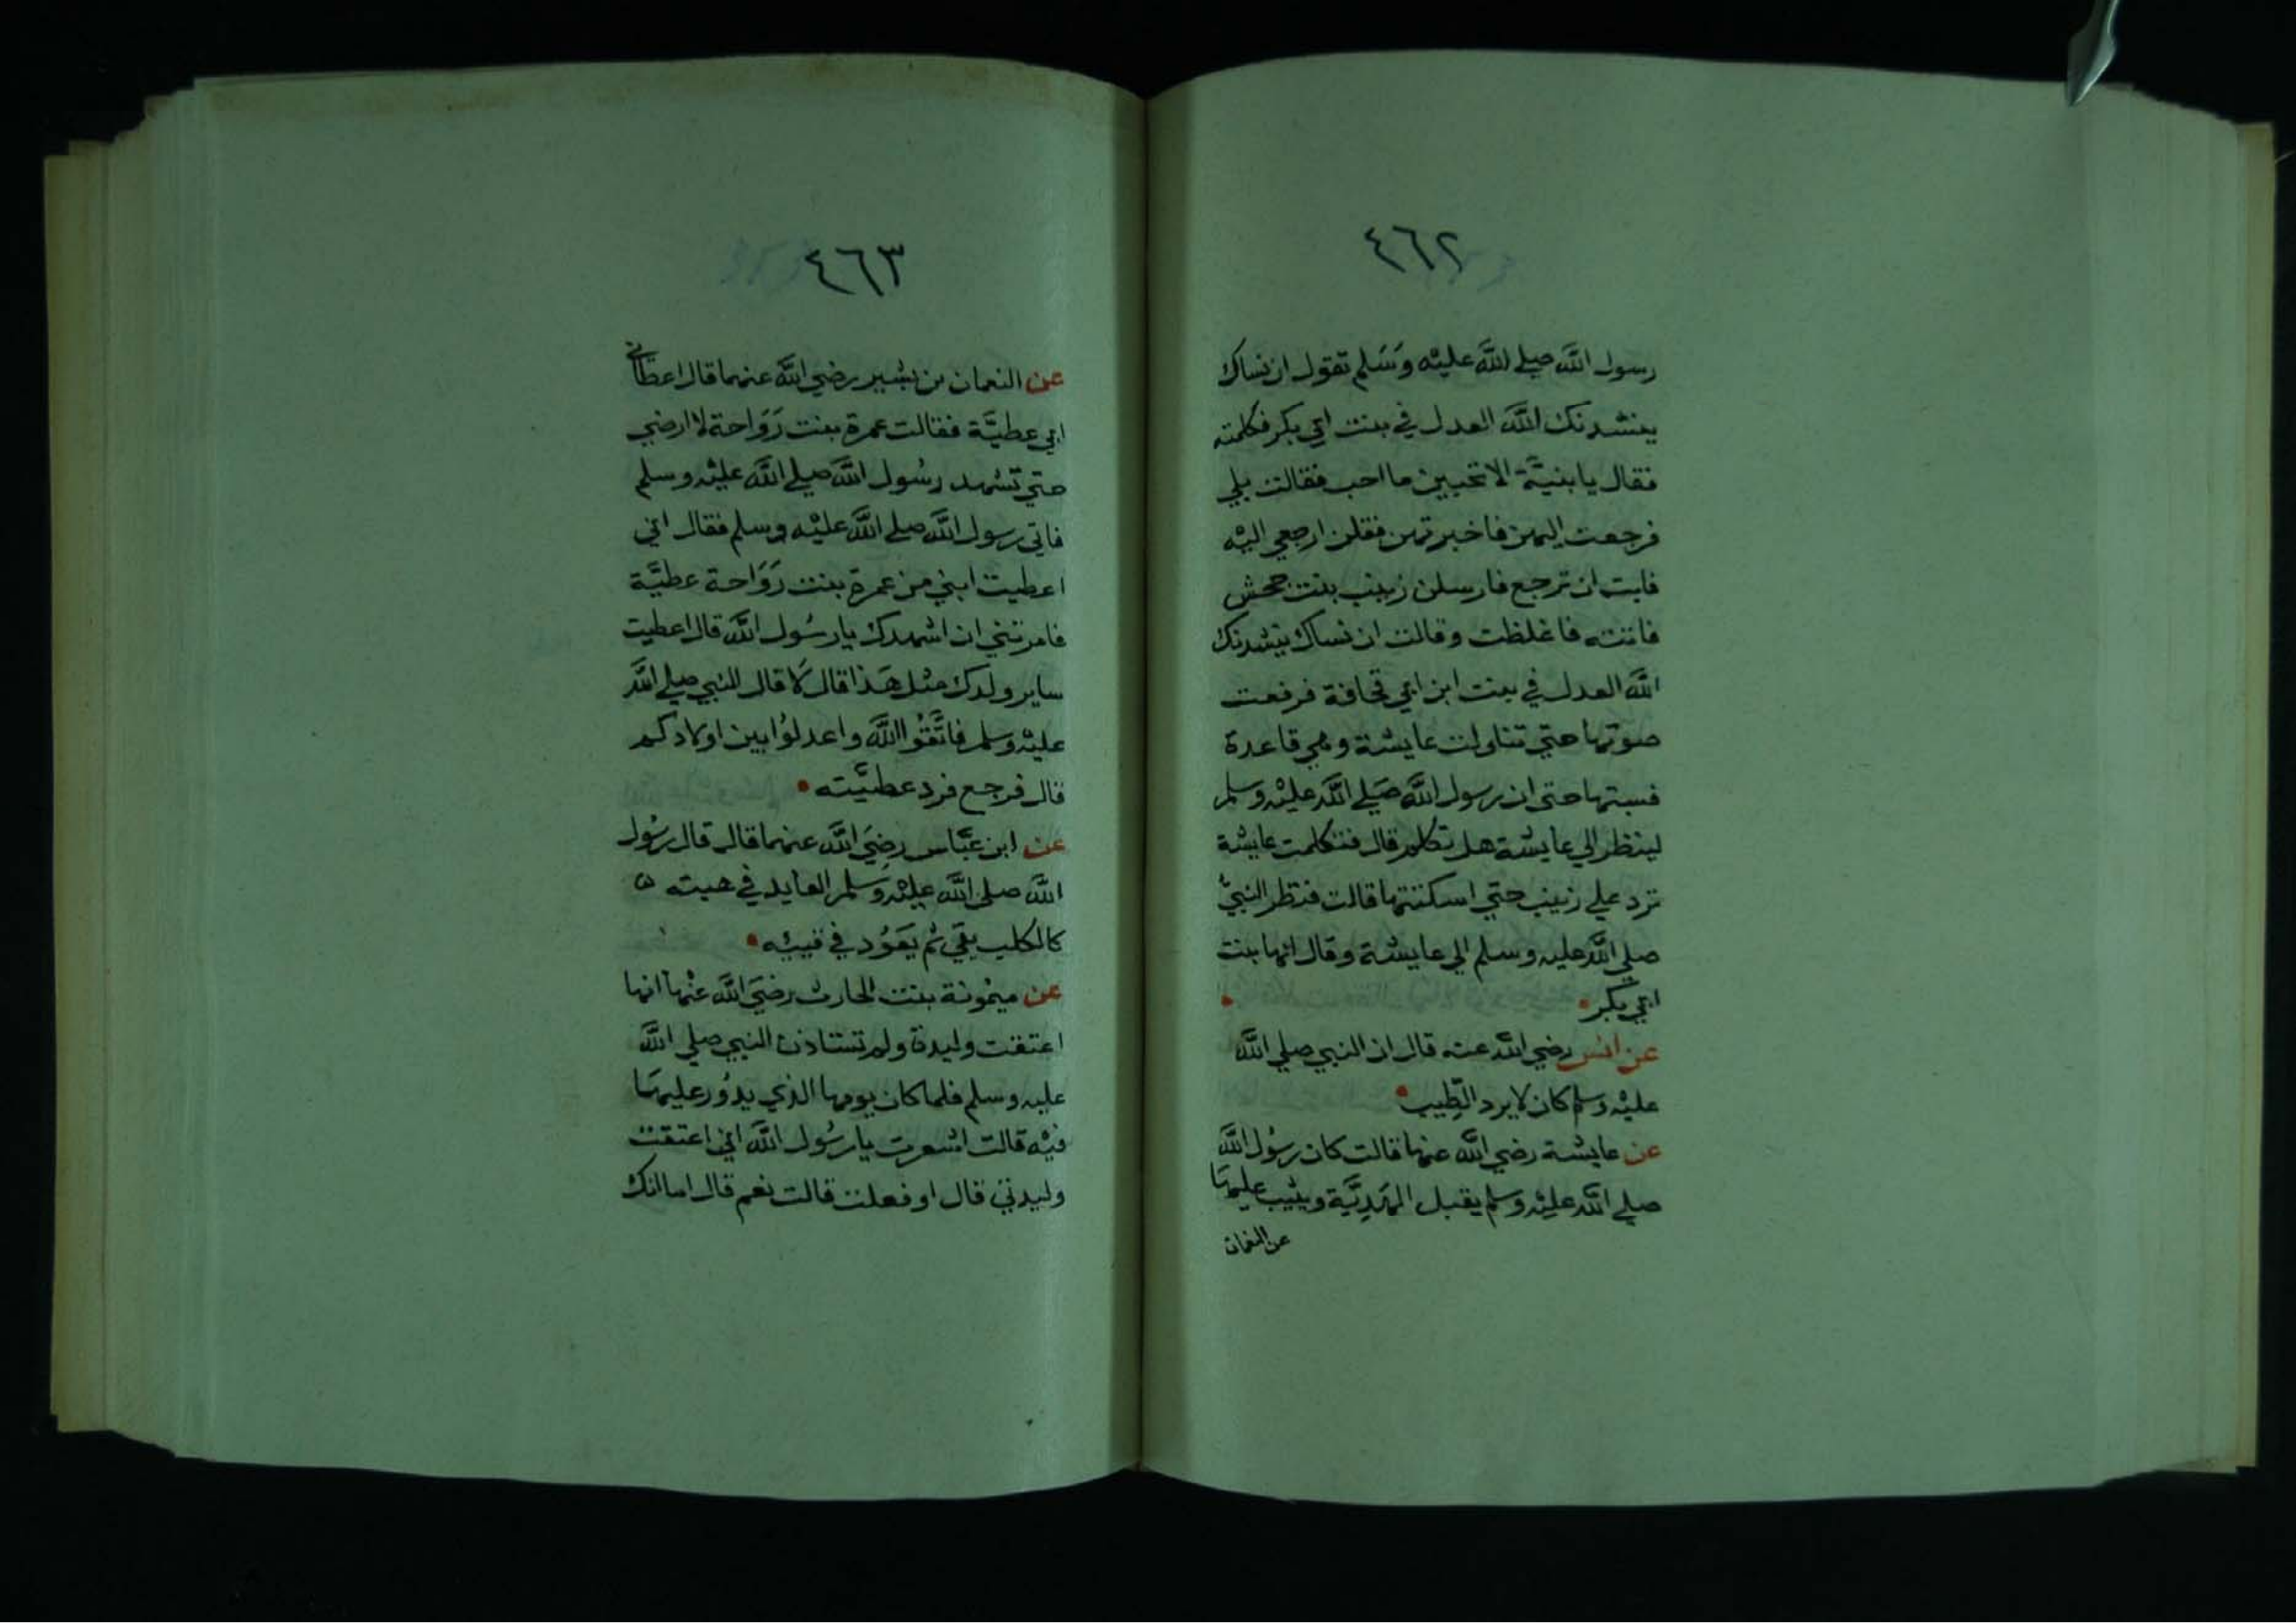 ٤٦٢
رسول الله صلي الله عليه وَسَلم تقول ان نساك
ينشدنك الله العدل في بنت ابي بكر فكلمته
فقال يا بنيَّة الا تحبين ما احب فقالت بلي
فرجعت اليهن فاخبرتهن فقلن ارجعي اليه
فابت ان ترجع فارسلن زينب بنت جحش
فاتته فاغلظت وقالت ان نساك ينشدنك
الله العدل في بنت ابن ابي قحافة فرفعت
صوتها حتي تناولت عايشة وهي قاعدة
فسبتها حتى ان رسول الله صَلي الله عليه وسلم
لينظر الي عايشة هل تكلم قال فتكلمت عايشة
ترد علي زينب حتي اسكتتها قالت فنظر النبيُّ
صلي الله عليه وسلم الي عايشة وقال انها بنت
ابي بكر
عن انس رضي الله عنه قال ان النبي صلي الله
عليه وسلم كان لا يرد الطِّيب
عن عايشة رضي الله عنها قالت كان رسُول الله
صلي الله عليه وسلم يقبل الهَدِيَّة ويثيب عليها
عن النعمان
٤٦٣
عن النعمان بن بشير رضي الله عنهما قال اعطاني
ابي عطيَّة فقالت عمرة بنت رَوَاحة لا ارضي
حتي تشهد رسُول الله صلي الله عليه وسلم
فاتى رسول الله صلي الله عليه وسلم فقال اني
اعطيت ابني من عمرة بنت رَوَاحة عطيَّة
فامرتني ان اشهدك يا رسُول الله قال اعطيت
ساير ولدك مثل هَذا قال لا قال النبي صلي الله
عليه وسلم فاتَّقُوا الله واعدلُوا بين اولادكم
قال فرجع فرد عطيَّته
عن ابن عبَّاس رضِيَ الله عنهما قال قال رسُول
الله صلى الله عليه وَسلم العايد في هبته
كالكلب يقي ثم يَعَوُد في قييه
عن ميمُونة بنت الحارث رضيَ الله عنها انها
اعتقت وليدة ولم تستاذن النبي صلي الله
عليه وسلم فلما كان يومها الذي يدُور عليها
فيه قالت اشعرت يا رسُول الله اني اعتقت
وليدتي قال اوفعلت قالت نعم قال اما انك